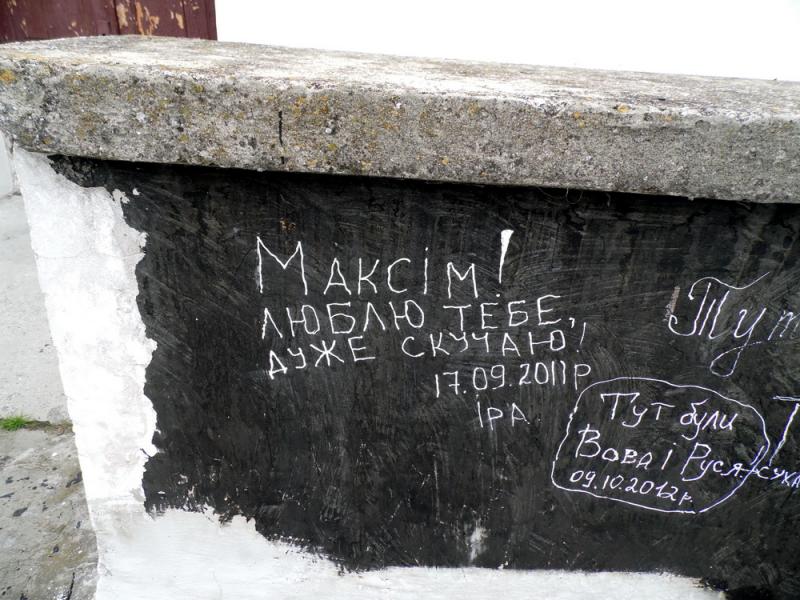 Максім!
люблю тебе,
дуже скучаю!
17.09.2011р
іра
Тут були
Вова і Руся
09.10.2012р.
Тут